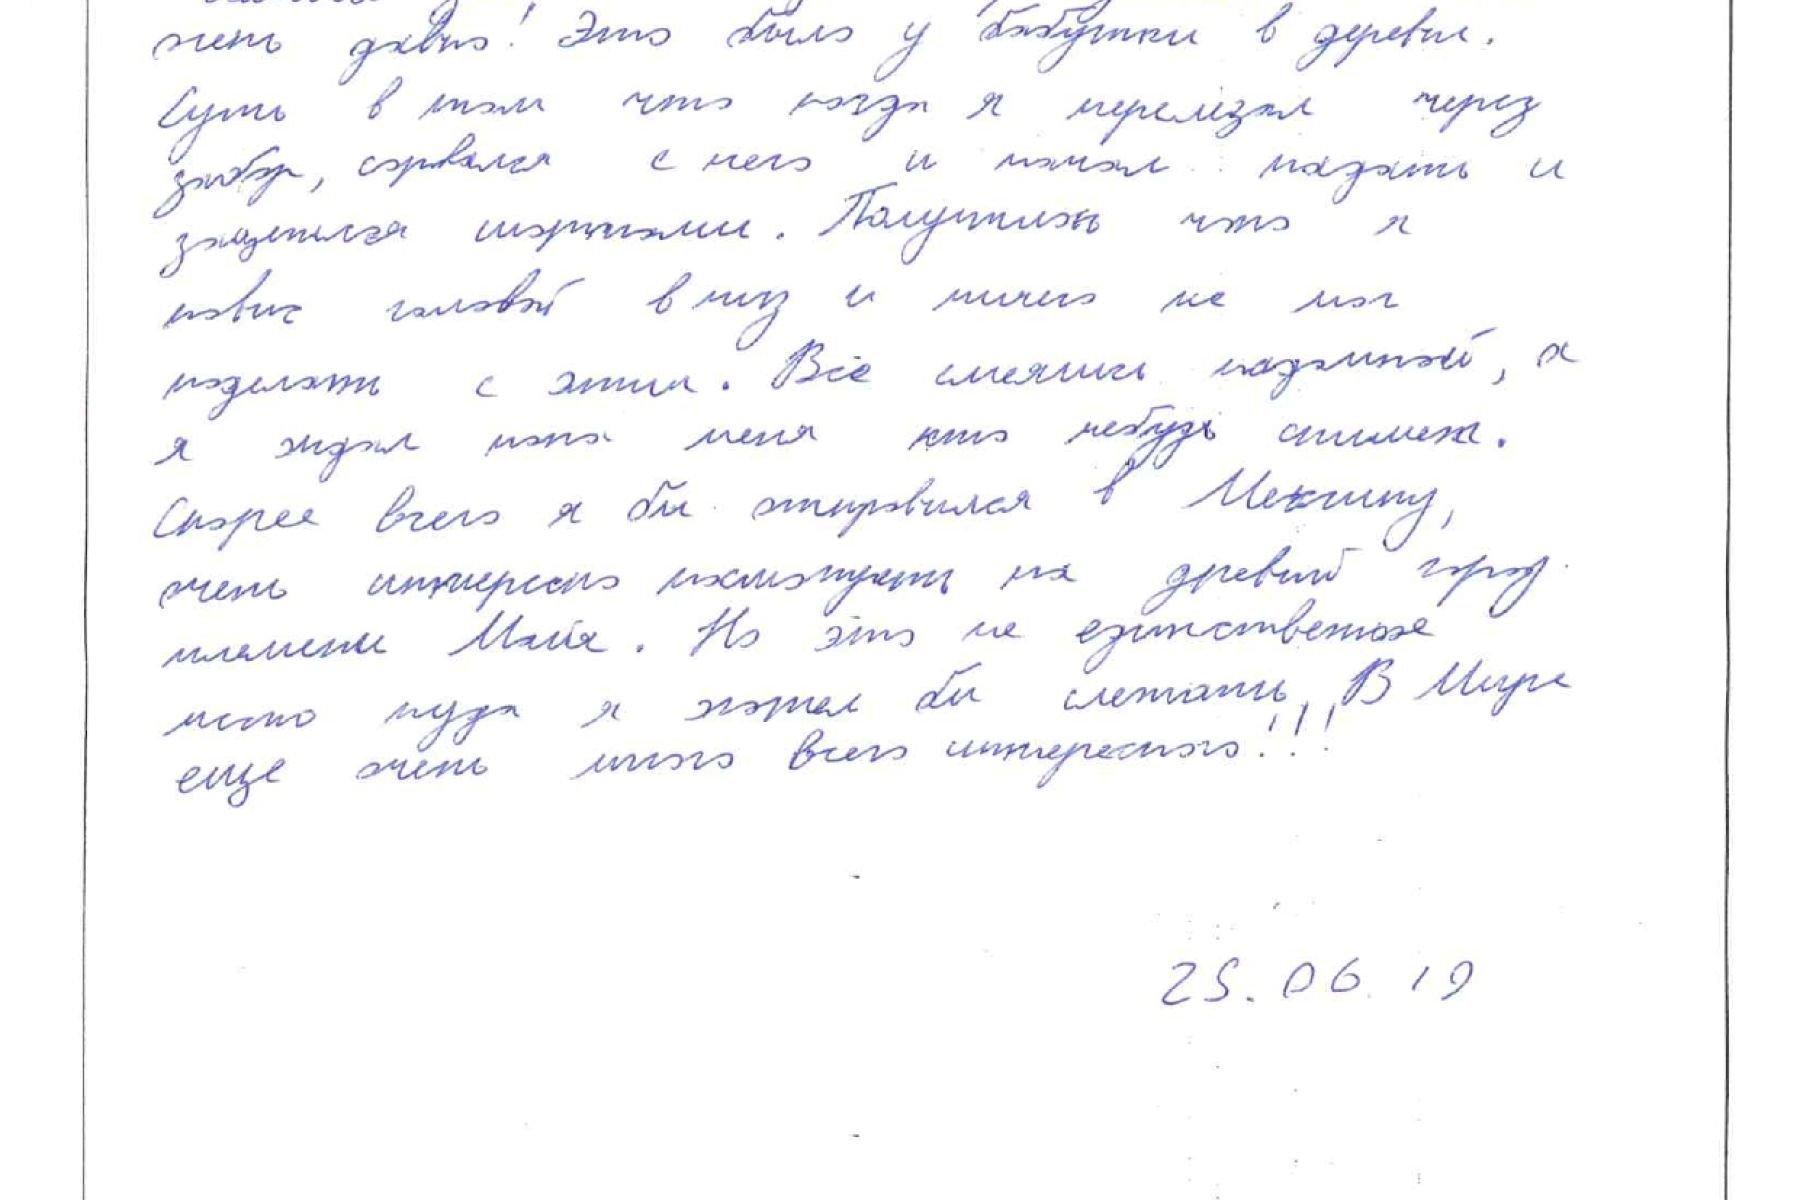 очень давно! Это было у бабушки в деревне.
Суть в том что когда я перелезал через
забор, сорвался с него и начал падать и
зацепился шортами. Получилось что я
повис головой в низ и ничего не мог
поделать с этим. Все смеялись надомной, а
я ждал пока меня кто небудь снимет.
Скорее всего я бы отправился в Мексику,
очень интересно посмотреть на древний город
племени Майя. Но это не единственное
место куда я хотел бы слетать, В Мире
еще очень много всего интересного!!!
25.06.19